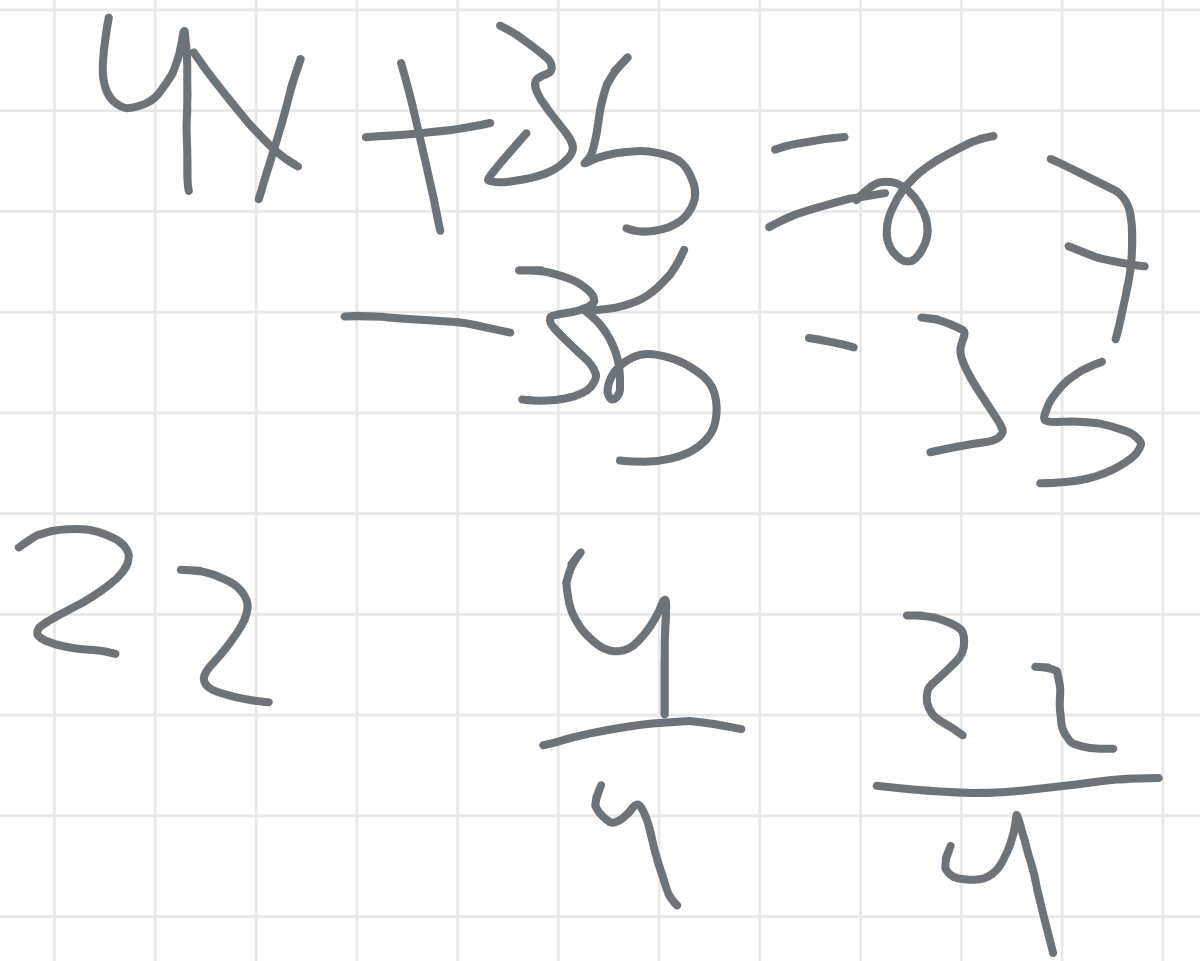 4x + 35 = 67
- 35 - 35
22 4 32
4 4